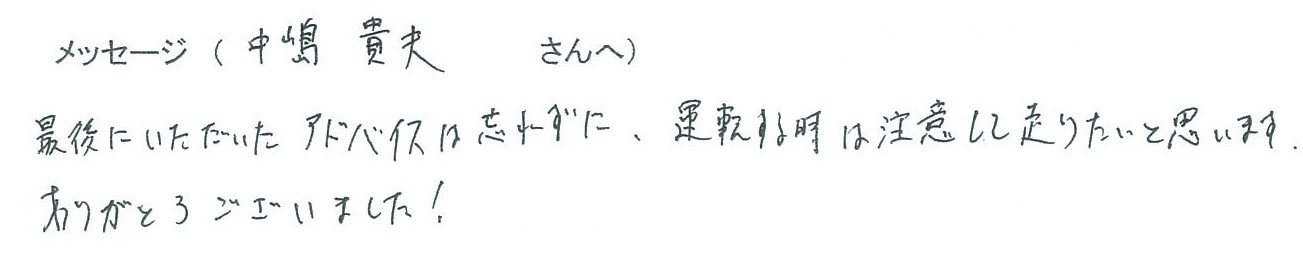 メッセージ（中嶋 貴夫 さんへ）
最後にいただいたアドバイスは忘れずに、運転する時は注意して走りたいと思います.
ありがとうございました！